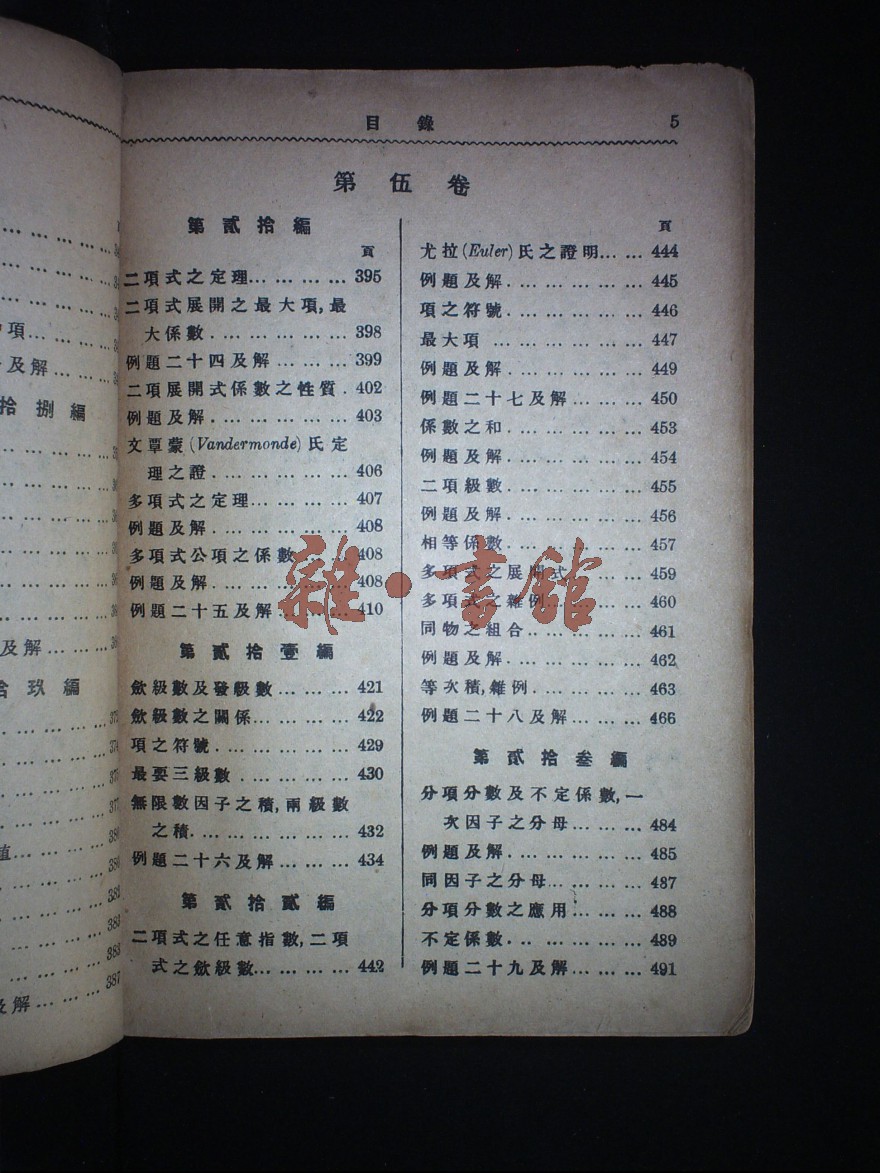 目錄 5
第伍卷
第貳拾編
頁
二項式之定理... ... ... ... 395
二項式展開之最大項,最
大係數. ... ... ... ... ... 398
例題二十四及解... ... ... 399
二項展開式係數之性質. 402
例題及解. ... ... ... ... ... 403
文覃蒙(Vandermonde)氏定
理之證. ... ... ... ... ... 406
多項式之定理... ... ... ... 407
例題及解. ... ... ... ... ... 408
多項式公項之係數... ... 408
例題及解. ... ... ... ... ... 408
例題二十五及解... ... ... 410
第貳拾壹編
斂級數及發級數... ... ... 421
斂級數之關係... ... ... ... 422
項之符號. ... ... ... ... ... 429
最要三級數. ... ... ... ... 430
無限數因子之積,兩級數
之積. ... ... ... ... ... ... 432
例題二十六及解... ... ... 434
第貳拾貳編
二項式之任意指數,二項
式之斂級數... ... ... ... 442
頁
尤拉(Euler)氏之證明... ... 444
例題及解. ... ... ... ... ... 445
項之符號. ... ... ... ... ... 446
最大項 ... ... ... ... ... ... 447
例題及解. ... ... ... ... ... 449
例題二十七及解... ... ... 450
係數之和. ... ... ... ... ... 453
例題及解. ... ... ... ... ... 454
二項級數. ... ... ... ... ... 455
例題及解. ... ... ... ... ... 456
相等係數. ... ... ... ... ... 457
多項式之展開式... ... ... 459
多項式之雜例... ... ... ... 460
同物之組合.. ... ... ... ... 461
例題及解. ... ... ... ... ... 462
等次積,雜例. ... ... ... ... 463
例題二十八及解... ... ... 466
第貳拾叁編
分項分數及不定係數,一
次因子之分母... ... ... 484
例題及解. ... ... ... ... ... 485
同因子之分母... ... ... ... 487
分項分數之應用... ... ... 488
不定係數. .. ... ... ... ... 489
例題二十九及解... ... ... 491
雜·書館